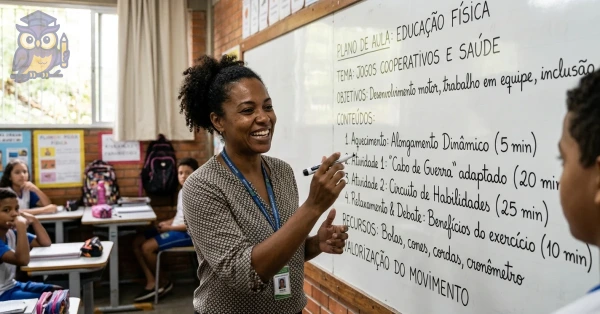 PLANO DE AULA: EDUCAÇÃO FÍSICA
TEMA: JOGOS COOPERATIVOS E SAÚDE
OBJETIVOS: Desenvolvimento motor, trabalho em equipe, inclusão
CONTEÚDOS:
1. Aquecimento: Alongamento Dinâmico (5 min)
Atividade 1: "Cabo de Guerra" adaptado (20 min)
Atividade 2: Circuito de Habilidades (25 min)
4. Relaxamento & Debate: Benefícios do exercício (10 min)
RECURSOS: Bolas, cones, cordas, cronômetro
VALORIZAÇÃO DO MOVIMENTO